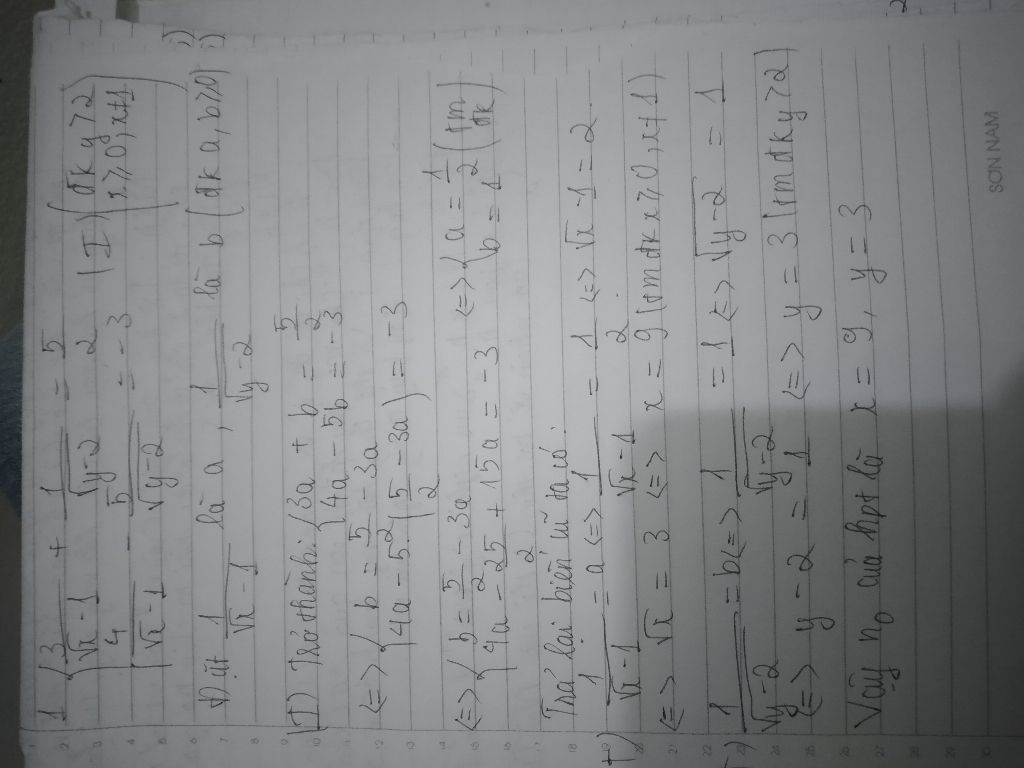 1 { 3/(√x - 1) + 1/√(y-2) = 5/2 (I) (đk y > 2
{ 4/(√x - 1) - 5/√(y-2) = -3 x ≥ 0, x ≠ 1)
Đặt 1/(√x - 1) là a, 1/√(y-2) là b (đk a, b ≥ 0)
(I) Trở thành: { 3a + b = 5/2
{ 4a - 5b = -3
<=> { b = 5/2 - 3a
{ 4a - 5.(5/2 - 3a) = -3
<=> { b = 5/2 - 3a <=> { a = 1/2 (tm
{ 4a - 25/2 + 15a = -3 { b = 1 đk)
Trả lại biến cũ ta có:
T) 1/(√x - 1) = a <=> 1/(√x - 1) = 1/2 <=> √x - 1 = 2.
<=> √x = 3 <=> x = 9 (tm đk x ≥ 0, x ≠ 1)
1/√(y-2) = b <=> 1/√(y-2) = 1 <=> √(y-2) = 1
<=> y - 2 = 1 <=> y = 3 (tm đk y > 2)
Vậy n₀ của hpt là x = 9, y = 3
SƠN NAM